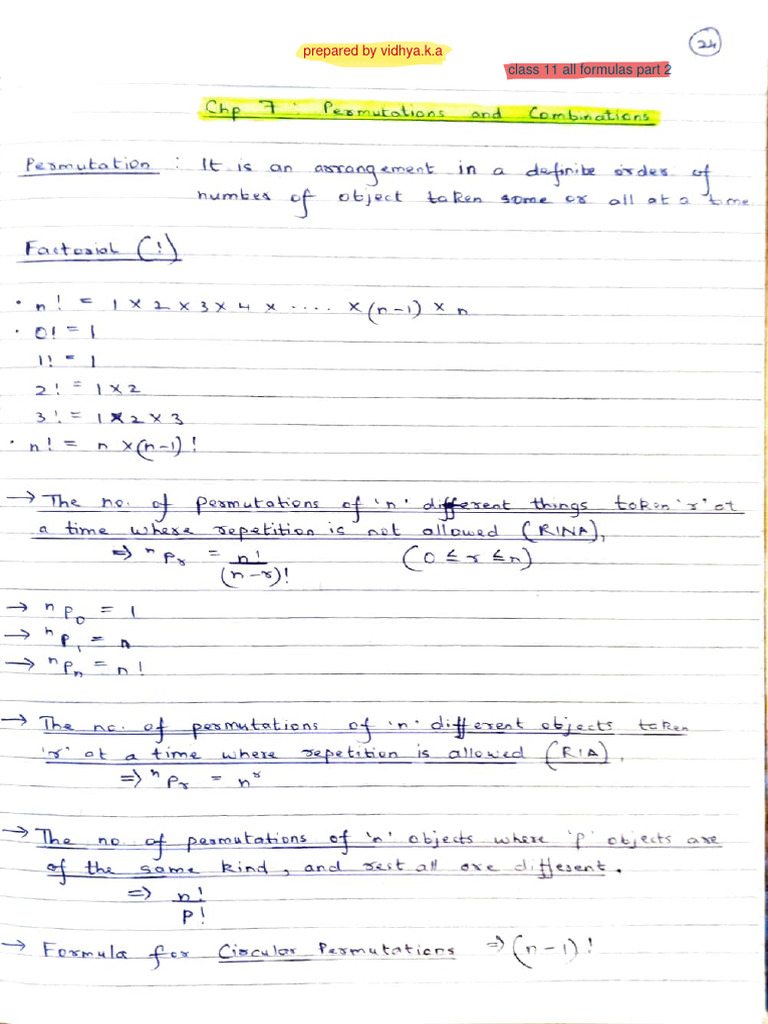 prepared by vidhya.k.a
24
class 11 all formulas part 2
Chp 7 : Permutations and Combinations
Permutation : It is an arrangement in a definite order of
number of object taken some or all at a time
Factorial (!)
• n! = 1 × 2 × 3 × 4 × .... × (n-1) × n
• 0! = 1
1! = 1
2! = 1 × 2
3! = 1 × 2 × 3
• n! = n × (n-1)!
→ The no. of permutations of 'n' different things taken 'r' at
a time where repetition is not allowed (RINA),
⇒ ⁿPᵣ = n!/(n-r)! (0 ≤ r ≤ n)
→ ⁿP₀ = 1
→ ⁿP₁ = n
→ ⁿPₙ = n!
→ The no. of permutations of 'n' different objects taken
'r' at a time where repetition is allowed (RIA),
⇒ ⁿPᵣ = nʳ
→ The no of permutations of 'n' objects where 'p' objects are
of the same kind, and rest all are different.
⇒ n!/P!
→ Formula for Circular Permutations ⇒ (n-1)!